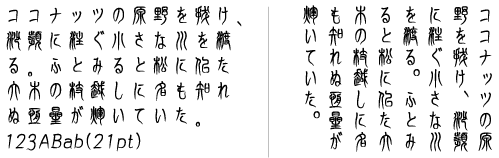 ココナッツの原野を抜け、
に注ぐ小さな川を渡
る。ふとみると松に似た
大木の枝越しに名も知れ
ぬ巨星が輝いていた。
123ABab(21pt)
ココナッツの原
野を抜け、
に注ぐ小さな川
を渡る。ふとみ
ると松に似た大
木の枝越しに名
も知れぬ巨星が
輝いていた。